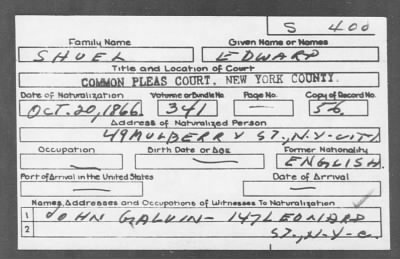 S 400
Family Name Given Name or Names
SHUEL EDWARD
Title and Location of Court
COMMON PLEAS COURT, NEW YORK COUNTY.
Date of Naturalization Volume or Bundle No. Page No. Copy of Record No.
OCT. 20, 1866. 341 — 56.
Address of Naturalized Person
49 MULBERRY ST., N.Y. CITY
Occupation Birth Date or Age Former Nationality
— — ENGLISH.
Port of Arrival in the United States Date of Arrival
— —
Names, Addresses and Occupations of Witnesses To Naturalization
1 JOHN GALVIN - 147 LEONARD
2 ST., N-Y-C.